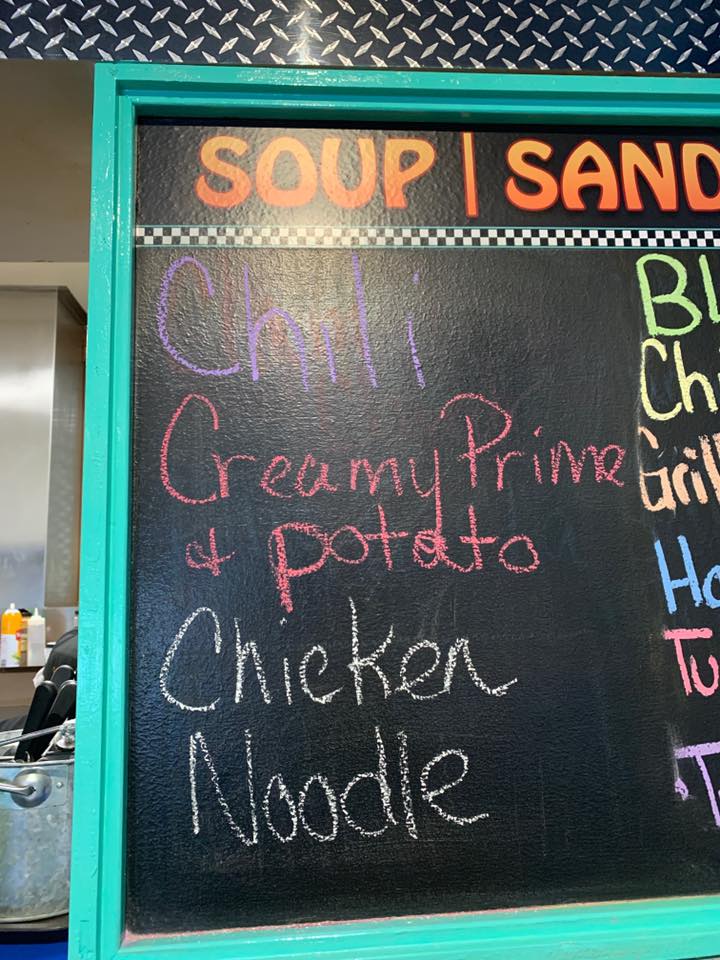 SOUP | SAND
Chili
Creamy Prime
& potato
Chicken
Noodle
BL
Chi
Grill
Ho
Tu
T